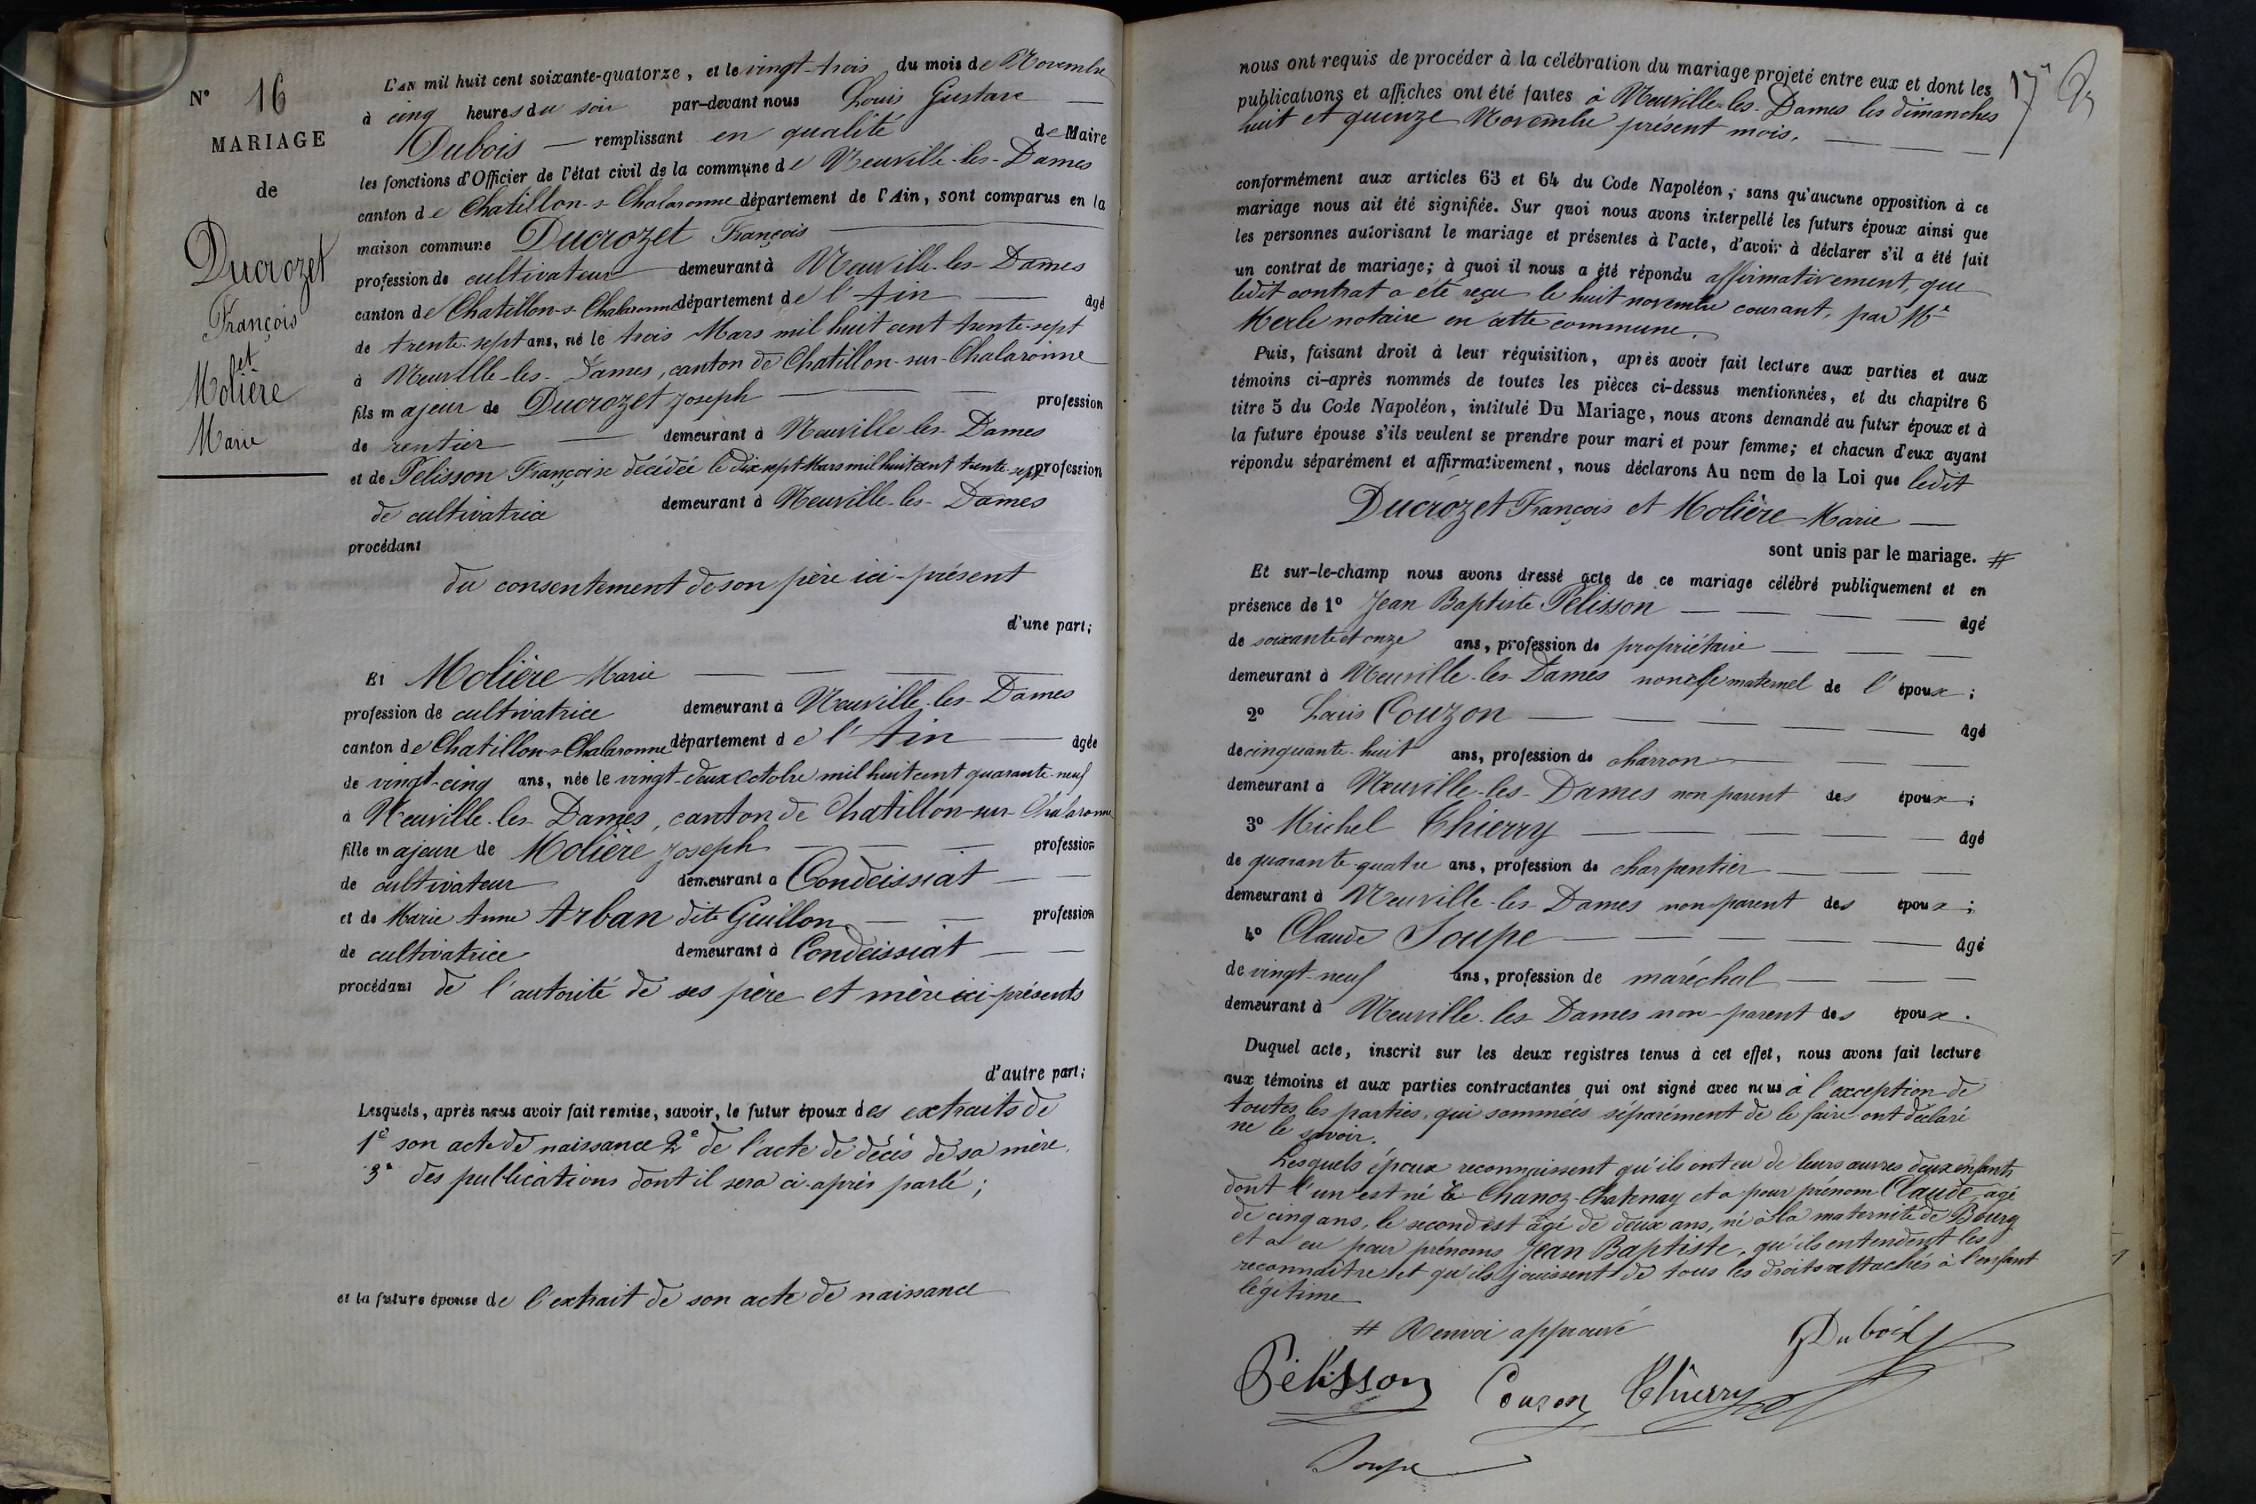 N° 16
MARIAGE
de
Ducrozet
François
et
Molière
Marie
L'AN mil huit cent soixante-quatorze, et le vingt-trois du mois de Novembre
à cinq heures du soir par-devant nous Louis Gustave
Dubois remplissant en qualité de Maire
les fonctions d'Officier de l'état civil de la commune de Neuville-les-Dames
canton de Chatillon-s-Chalaronne département de l'Ain, sont comparus en la
maison commune Ducrozet François
profession de cultivateur demeurant à Neuville-les-Dames
canton de Chatillon-s-Chalaronne département de l'Ain âgé
de trente-sept ans, né le trois Mars mil huit cent trente-sept
à Neuville-les-Dames, canton de Chatillon-sur-Chalaronne
fils majeur de Ducrozet Joseph profession
de rentier demeurant à Neuville-les-Dames
et de Pélisson Françoise décédée le dix sept Mars mil huit cent trente-sept profession
de cultivatrice demeurant à Neuville-les-Dames
procédant
du consentement de son père ici-présent
d'une part;
Et Molière Marie
profession de cultivatrice demeurant à Neuville-les-Dames
canton de Chatillon-s-Chalaronne département de l'Ain âgée
de vingt-cinq ans, née le vingt-deux octobre mil huit cent quarante-neuf
à Neuville-les-Dames, canton de Chatillon-sur-Chalaronne
fille majeure de Molière Joseph profession
de cultivateur demeurant à Condeissiat
et de Marie Anne Arban dite Guillon profession
de cultivatrice demeurant à Condeissiat
procédant de l'autorité de ses père et mère ici-présents
d'autre part;
Lesquels, après nous avoir fait remise, savoir, le futur époux des extraits de
1° son acte de naissance 2° de l'acte de décès de sa mère,
3° des publications dont il sera ci-après parlé;
et la future épouse de l'extrait de son acte de naissance
17
nous ont requis de procéder à la célébration du mariage projeté entre eux et dont les
publications et affiches ont été faites à Neuville-les-Dames les dimanches
huit et quinze Novembre présent mois.
conformément aux articles 63 et 64 du Code Napoléon, sans qu'aucune opposition à ce
mariage nous ait été signifiée. Sur quoi nous avons interpellé les futurs époux ainsi que
les personnes autorisant le mariage et présentes à l'acte, d'avoir à déclarer s'il a été fait
un contrat de mariage; à quoi il nous a été répondu affirmativement, que
ledit contrat a été reçu le huit novembre courant, par Me
Merle notaire en cette commune.
Puis, faisant droit à leur réquisition, après avoir fait lecture aux parties et aux
témoins ci-après nommés de toutes les pièces ci-dessus mentionnées, et du chapitre 6
titre 5 du Code Napoléon, intitulé Du Mariage, nous avons demandé au futur époux et à
la future épouse s'ils veulent se prendre pour mari et pour femme; et chacun d'eux ayant
répondu séparément et affirmativement, nous déclarons Au nom de la Loi que ledit
Ducrozet François et Molière Marie
sont unis par le mariage. #
Et sur-le-champ nous avons dressé acte de ce mariage célébré publiquement et en
présence de 1° Jean Baptiste Pélisson âgé
de soixante et onze ans, profession de propriétaire
demeurant à Neuville-les-Dames maternel de l'époux;
2° Louis Couzon âgé
de cinquante-huit ans, profession de charron
demeurant à Neuville-les-Dames non parent des époux;
3° Michel Thierry âgé
de quarante-quatre ans, profession de charpentier
demeurant à Neuville-les-Dames non-parent des époux;
4° Claude Soupe âgé
de vingt-neuf ans, profession de maréchal
demeurant à Neuville-les-Dames non-parent des époux.
Duquel acte, inscrit sur les deux registres tenus à cet effet, nous avons fait lecture
aux témoins et aux parties contractantes qui ont signé avec nous à l'exception de
toutes les parties, qui sommées séparément de le faire ont déclaré
ne le savoir.
Lesquels époux reconnaissent qu'ils ont eu de leurs œuvres deux enfants
dont l'un est né à Chanoz-Chatenay et a pour prénom Claude âgé
de cinq ans, le second est âgé de deux ans, né à la maternité de Bourg
et a eu pour prénoms Jean Baptiste, qu'ils entendent les
reconnaître et qu'ils jouissent de tous les droits attachés à l'enfant
légitime
# Renvoi approuvé
G Dubois
Pélisson Couzon Thierry
Soupe